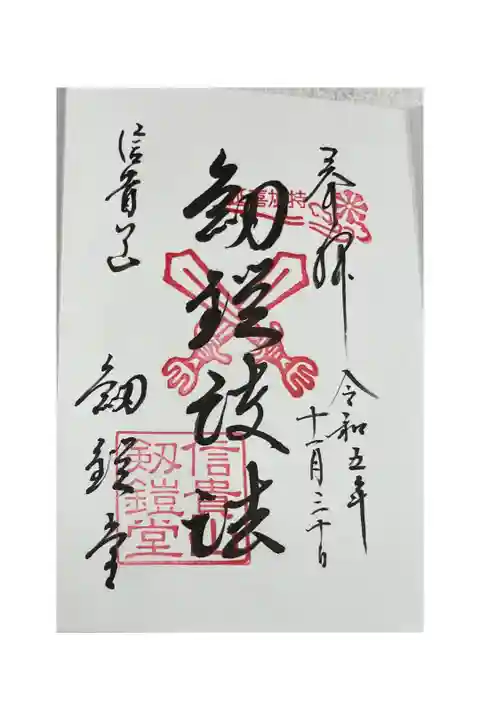 奉拝
令和五年
十一月二十日
延喜加持
釼鎧護法
信貴山
釼鎧堂
信貴山
剱鎧堂